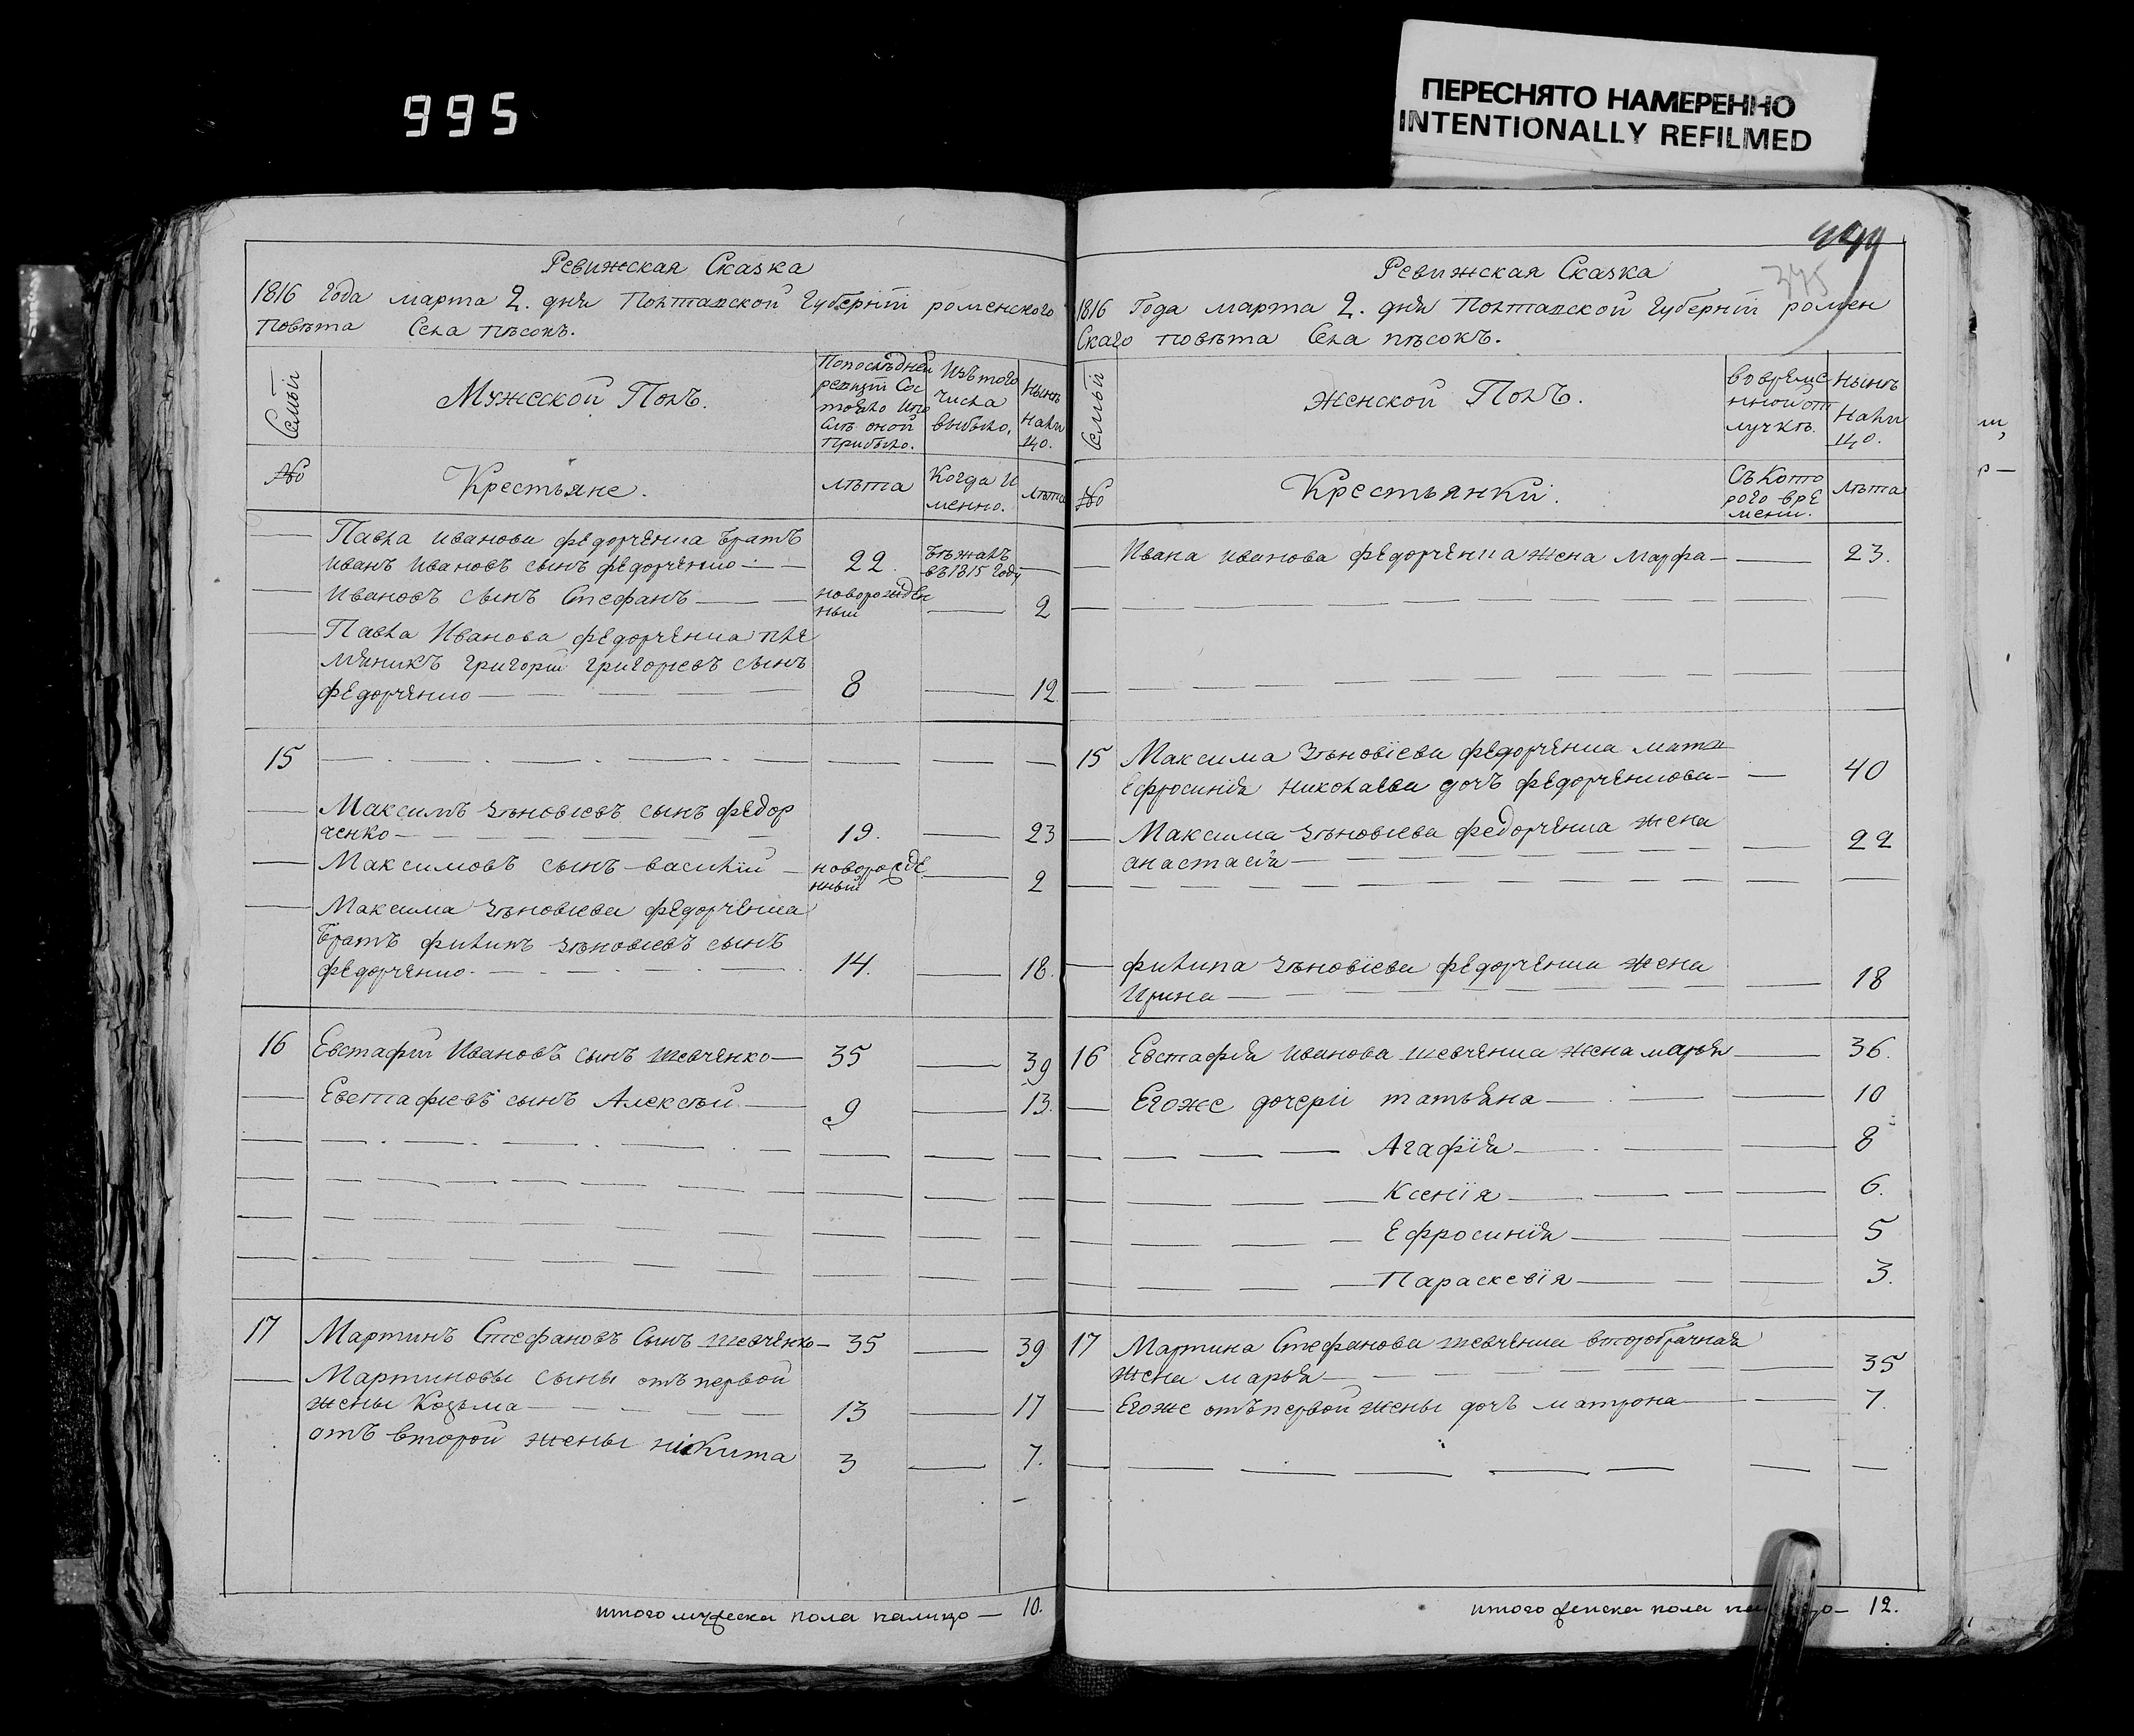 995
ПЕРЕСНЯТО НАМЕРЕННО
INTENTIONALLY REFILMED
Ревижская Сказка
1816 года марта 2. дня Полтавской Губерніи роменского
Повѣта Села пѣсокъ.
Семьи
Мужеской Полъ.
По послѣдней
ревизіи Сос
тояло и по
слѣ оной
прибыло.
Изъ того
числа
выбыло,
Нынѣ
нали
цо.
№
Крестьяне.
лѣта
Когда и
менно.
лѣта
Павла иванова федорченка братъ
иванъ ивановъ сынъ федорченко 22. бѣжалъ въ 1815 году
Ивановъ сынъ Стефанъ новорожден
ный 2
Павла Иванова федорченка пле
мяникъ григорій григорьевъ сынъ
федорченко 8 12.
15
Максимъ зѣновіевъ сынъ федор
ченко 19. 23
Максимовъ сынъ василій новорожде
нный 2
Максима зѣновіева федорченка
братъ филипъ зѣновіевъ сынъ
федорченко. 14. 18.
16 Евстафій Ивановъ сынъ шевченко 35 39
Евстафіевъ сынъ Алексѣй 9 13.
17 Мартинъ Стефановъ Сынъ шевченко 35 39
Мартиновы сыны отъ первой
жены Козьма 13 17
отъ второй жены никита 3 7.
итого мужеска пола налицо 10.
375
Ревижская Сказка
1816 Года марта 2. дня Полтавской Губерніи ромен
Скаго повѣта Села пѣсокъ.
Семьи
Женской Полъ.
во време
нной от
лучкѣ.
Нынѣ
нали
цо.
№
Крестьянки.
Съ кото
рого вре
мени.
лѣта
Ивана иванова федорченка жена марфа 23.
15 Максима Зѣновіева федорченка мать
Ефросинія николаева дочъ федорченкова 40
Максима зѣновіева федорченка жена
анастасія 22
филипа зѣновіева федорченка жена
Ирина 18
16 Евстафія иванова шевченка жена марья 36.
Егоже дочери татьяна 10
Агафія 8
Ксенія 6.
Ефросинія 5
Параскевія 3.
17 Мартина Стефанова шевченка второбрачная
жена марья 35
Егоже отъ первой жены дочъ матрона 7.
итого женска пола 12.